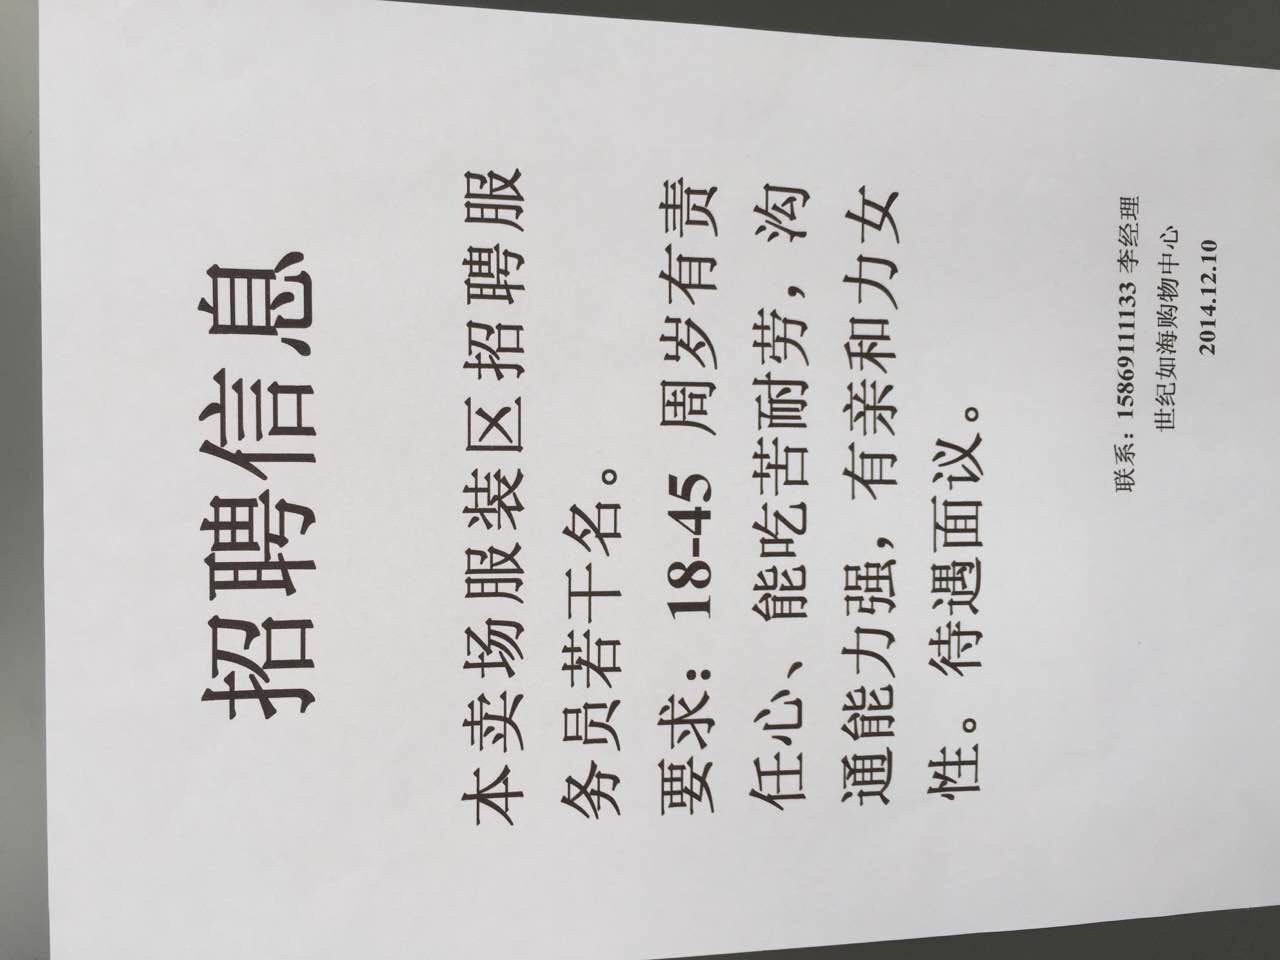 招聘信息
本卖场服装区招聘服
务员若干名。
要求：18-45 周岁有责
任心、能吃苦耐劳，沟
通能力强，有亲和力女
性。待遇面议。
联系：15869111133 李经理
世纪如海购物中心
2014.12.10